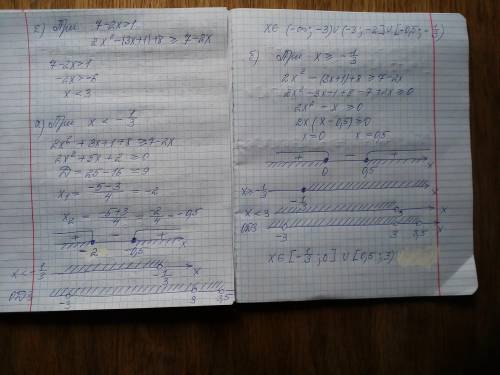 2) При 7-2x>1
2x²-|3x+1|+8 ≥ 7-2x
7-2x>1
-2x>-6
x<3
а) При x < -1/3
2x²+3x+1+8 ≥ 7-2x
2x²+5x+2 ≥ 0
D = 25-16 = 9
x₁ = (-5-3)/4 = -2
x₂ = (-5+3)/4 = -2/4 = -0,5
+ - +
-2 -0,5 x
x<-1/3 -1/3 x
ОДЗ -3 3 3,5
x∈ (-∞; -3)∪(-3; -2]∪[-0,5; -1/3)
б) При x ≥ -1/3
2x² - (3x+1)+8 ≥ 7-2x
2x²-3x-1+8-7+2x ≥ 0
2x²-x ≥ 0
2x(x-0,5) ≥ 0
x=0 x=0,5
+ - +
0 0,5 x
x≥-1/3 -1/3 x
x<3 3 x
ОДЗ -3 3 3,5 x
x∈ [-1/3; 0] ∪ [0,5; 3)